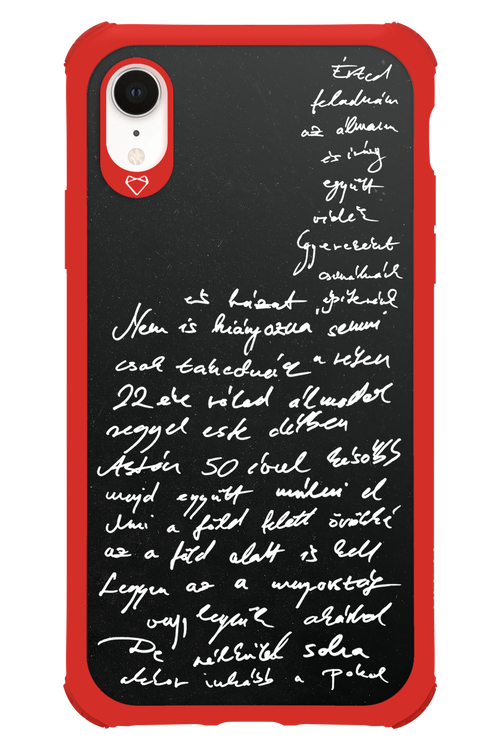 Érted
feladnám
az álmaim
és irány
együtt
vidék
Gyerekeket
csinálnánk
és házat építenénk
Nem is hiányozna semmi
csak takednék a réten
22 éve rólad álmodok
reggel este délben
Aztán 50 évvel később
majd együtt múlni el
Ami a föld felett örökké
az a föld alatt is kell
Legyen az a mennyország
vagy legyünk akárhol
De nélküled soha
akkor inkább a pokol